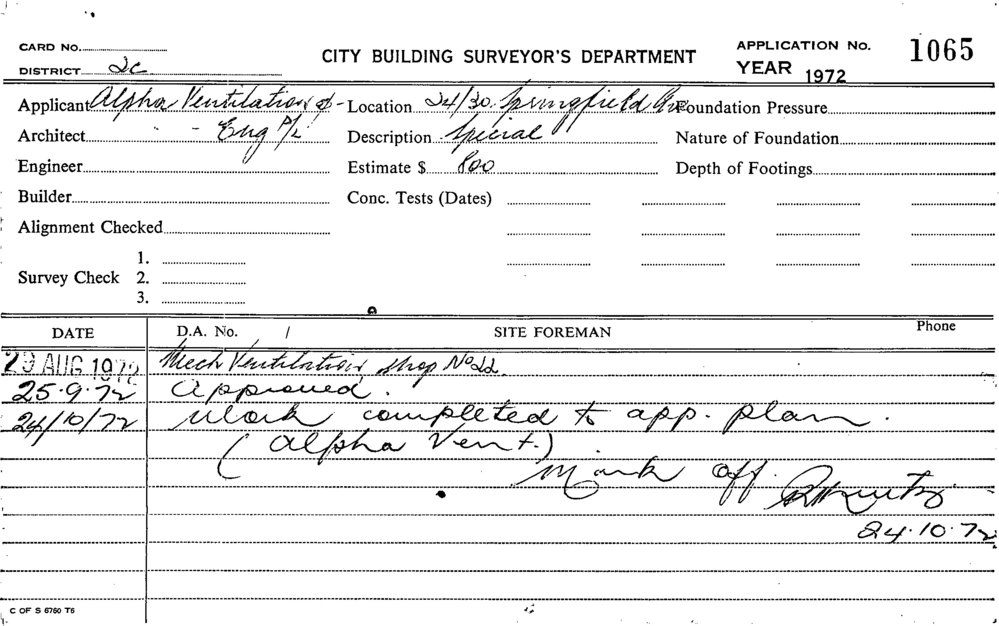 CARD NO.
DISTRICT 2c
CITY BUILDING SURVEYOR'S DEPARTMENT
APPLICATION No. 1065
YEAR 1972
Applicant Alpha Ventilation & - Location 24/30 Springfield Ave Foundation Pressure
Architect - Eng P/L Description Special Nature of Foundation
Engineer Estimate $ 800 Depth of Footings
Builder Conc. Tests (Dates)
Alignment Checked
1.
Survey Check 2.
3.
DATE D.A. No. / SITE FOREMAN Phone
29 AUG 1972 Mech Ventilation shop No 22.
25.9.72 Approved.
24/10/72 Work completed to app. plan.
(Alpha Vent.)
Mark off.
24.10.72
C OF S 6760 T6